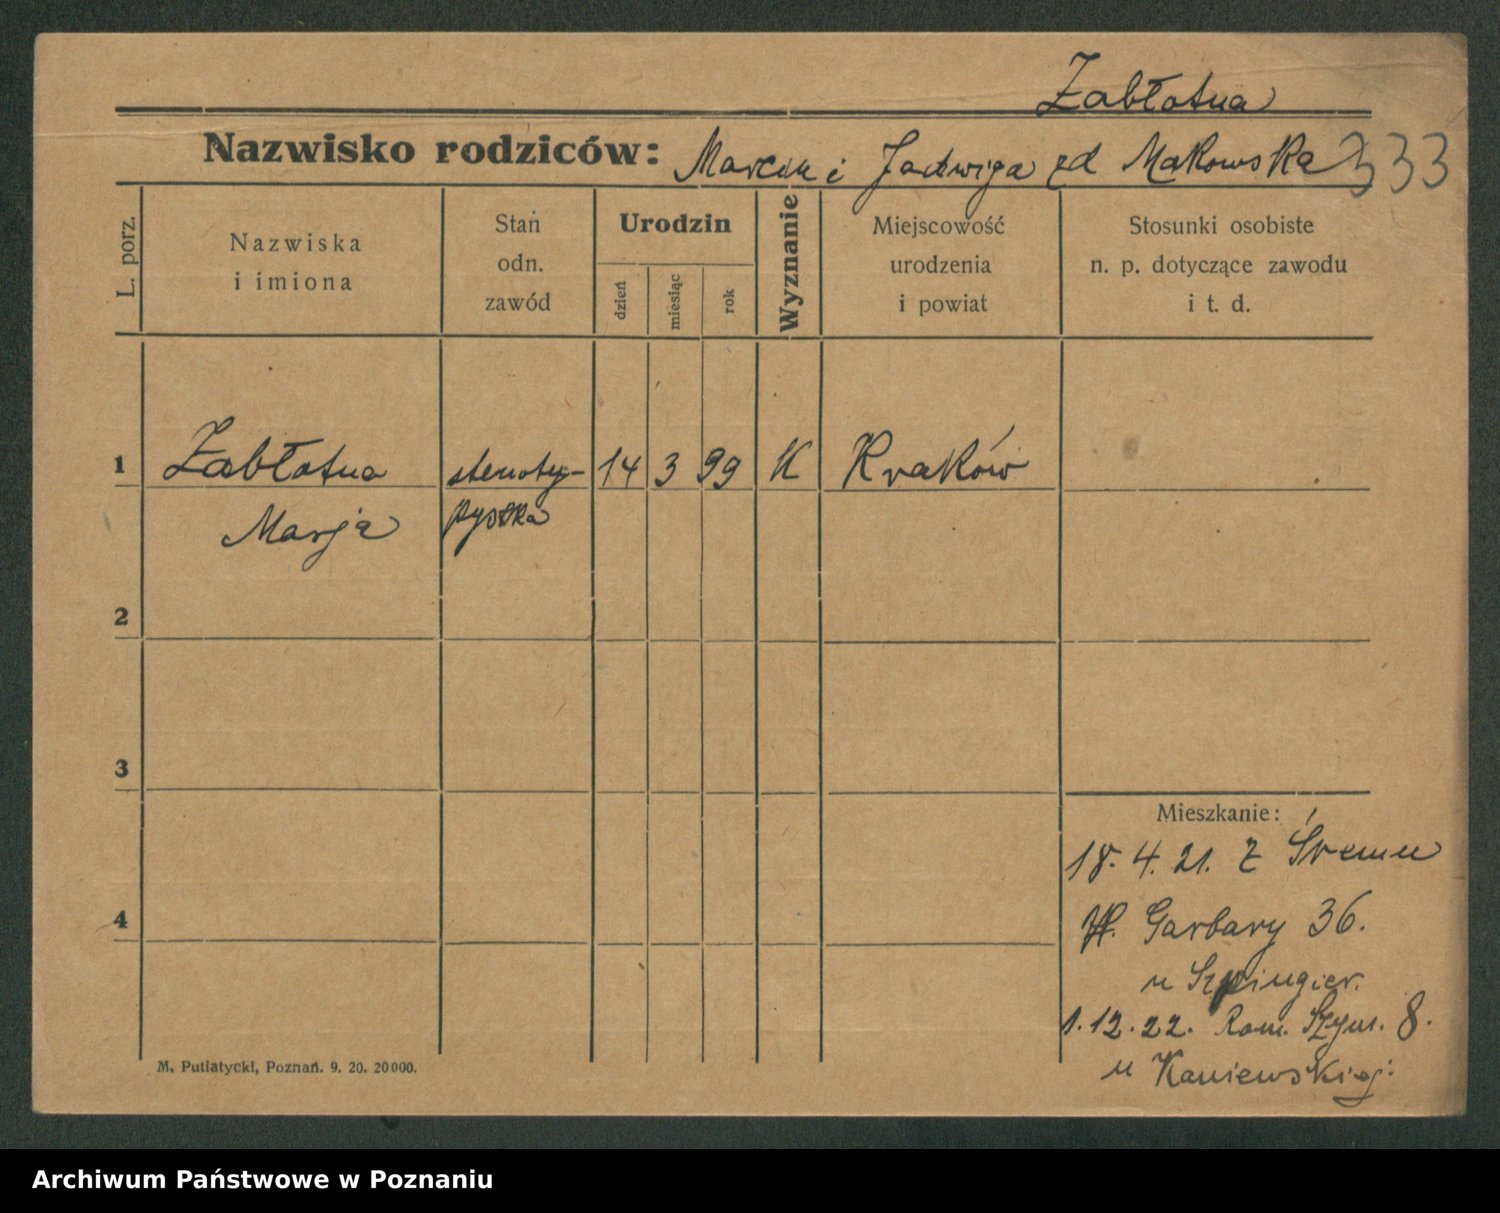 Zabłotna
Nazwisko rodziców: Marcin i Jadwiga zd Makowska 333
L. porz.
Nazwiska
i imiona
Stan
odn.
zawód
Urodzin
dzień
miesiąc
rok
Wyznanie
Miejscowość
urodzenia
i powiat
Stosunki osobiste
n. p. dotyczące zawodu
i t. d.
1 Zabłotna stenoty- 14 3 99 K Kraków
Marja pystka
2
3
Mieszkanie:
18. 4. 21. z Śremu
4
Garbary 36.
u Szpingier.
1. 12. 22. Rom. Szym. 8.
u Kaniewskiej.
M. Putiatycki, Poznań. 9. 20. 20000.
Archiwum Państwowe w Poznaniu